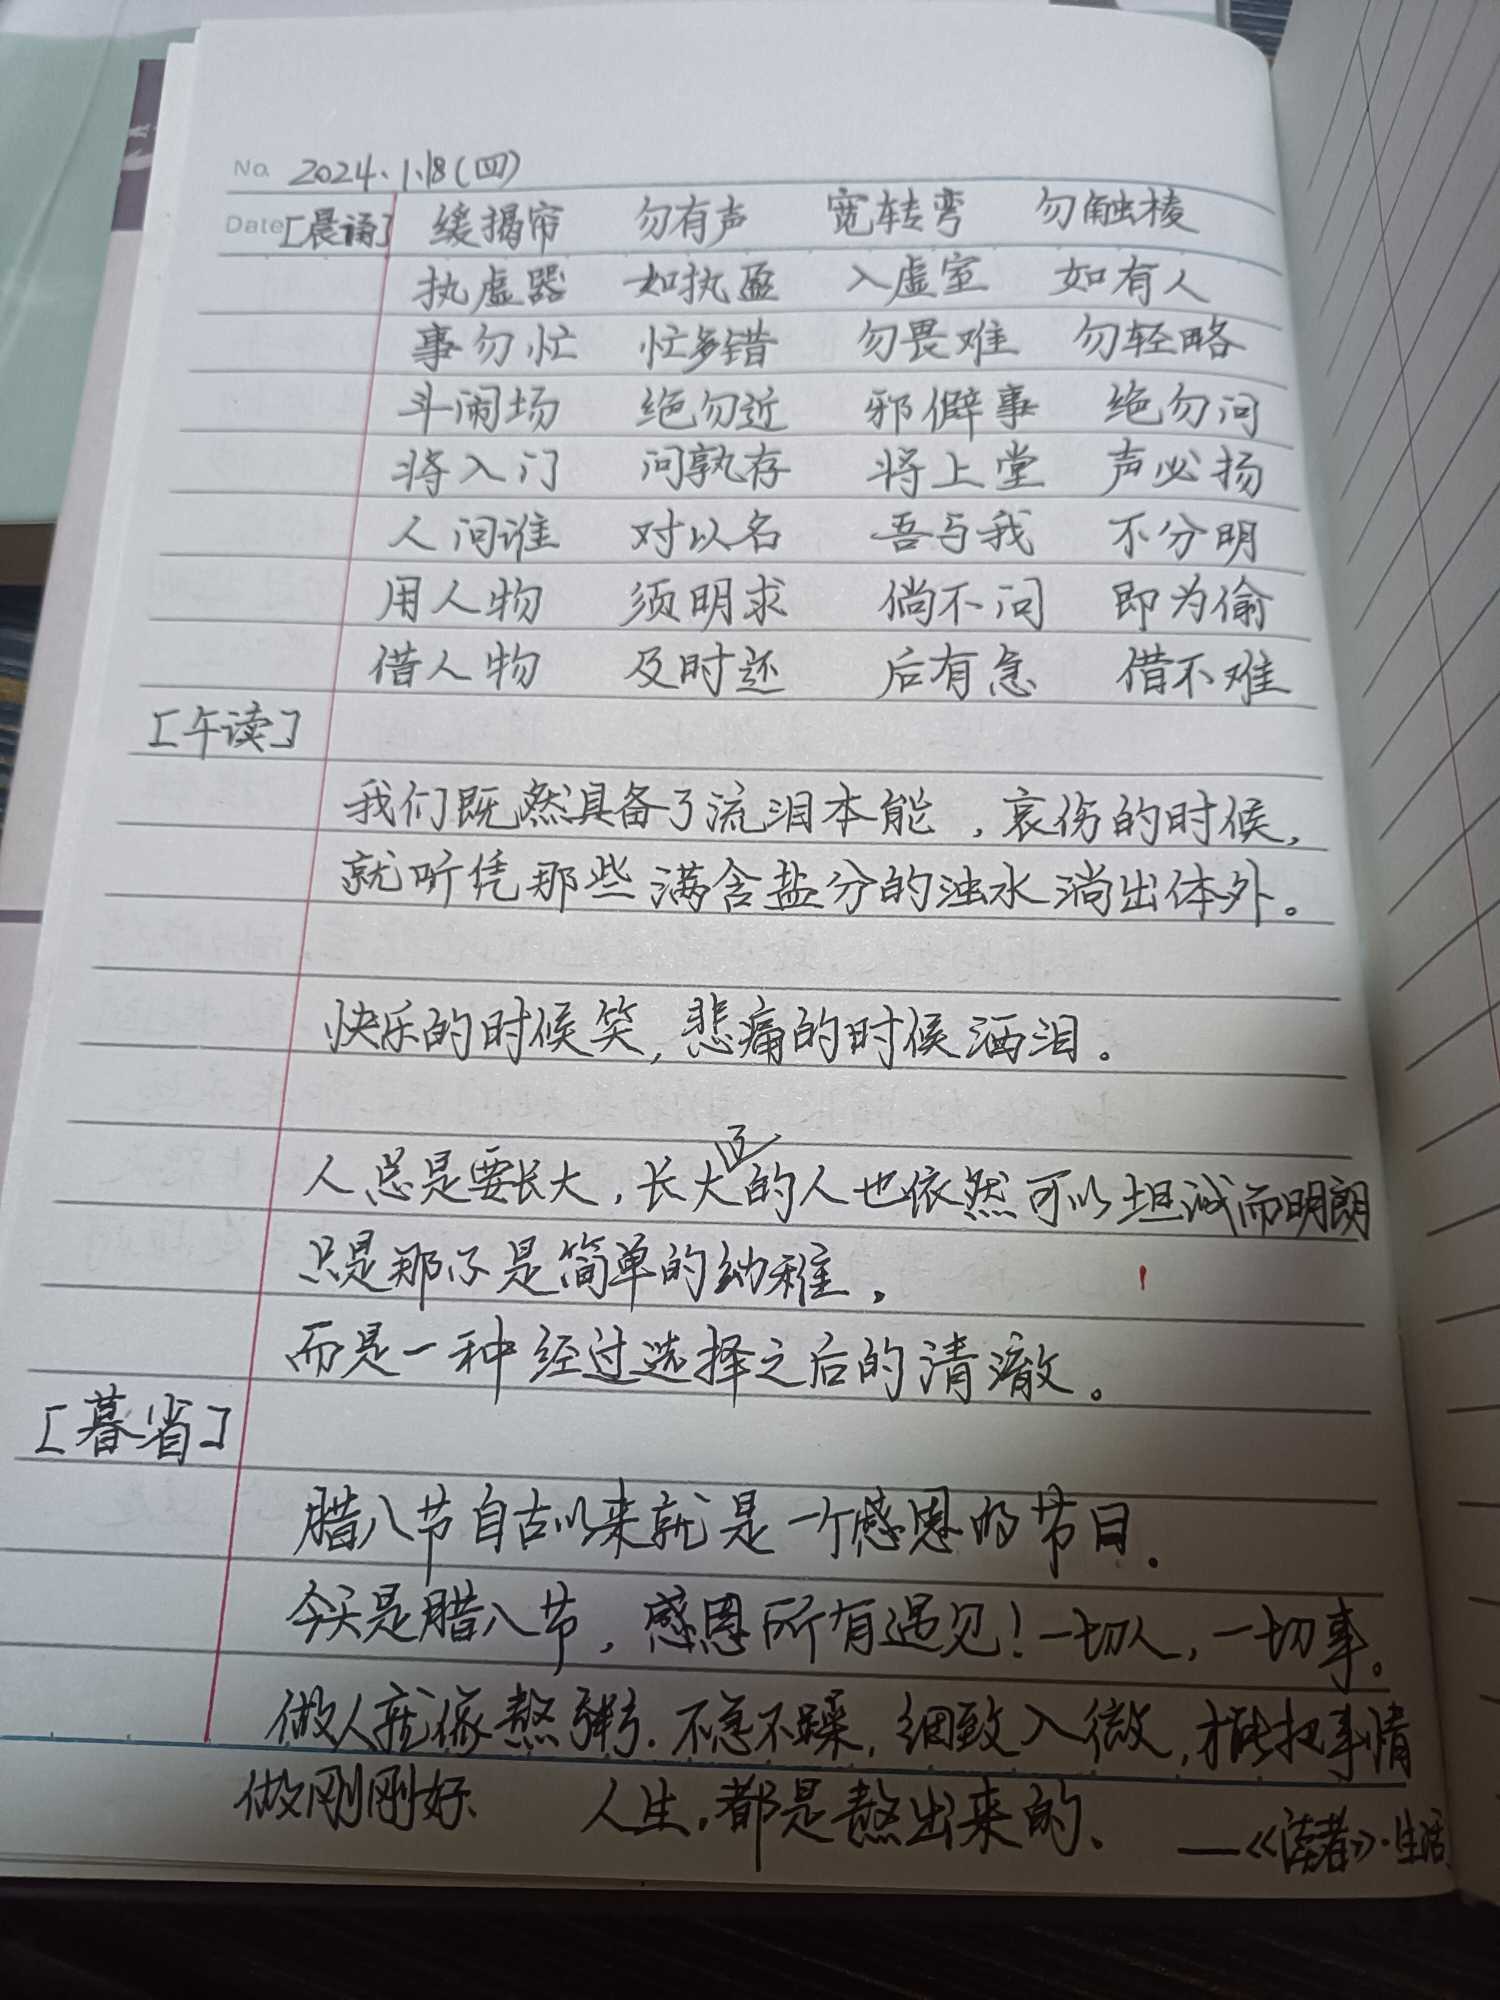 No. 2024.1.18(四)
Date [晨诵] 缓揭帘 勿有声 宽转弯 勿触棱
执虚器 如执盈 入虚室 如有人
事勿忙 忙多错 勿畏难 勿轻略
斗闹场 绝勿近 邪僻事 绝勿问
将入门 问孰存 将上堂 声必扬
人问谁 对以名 吾与我 不分明
用人物 须明求 倘不问 即为偷
借人物 及时还 后有急 借不难
[午读]
我们既然具备了流泪本能，哀伤的时候，
就听凭那些满含盐分的浊水淌出体外。
快乐的时候笑，悲痛的时候洒泪。
人总是要长大，长大了的人也依然可以坦诚而明朗
只是那不是简单的幼稚，
而是一种经过选择之后的清澈。
[暮省]
腊八节自古以来就是一个感恩的节日.
今天是腊八节，感恩所有遇见！一切人，一切事。
做人就像熬粥.不急不躁，细致入微，才能把事情
做刚刚好、 人生，都是熬出来的、 ——《读者》·生活